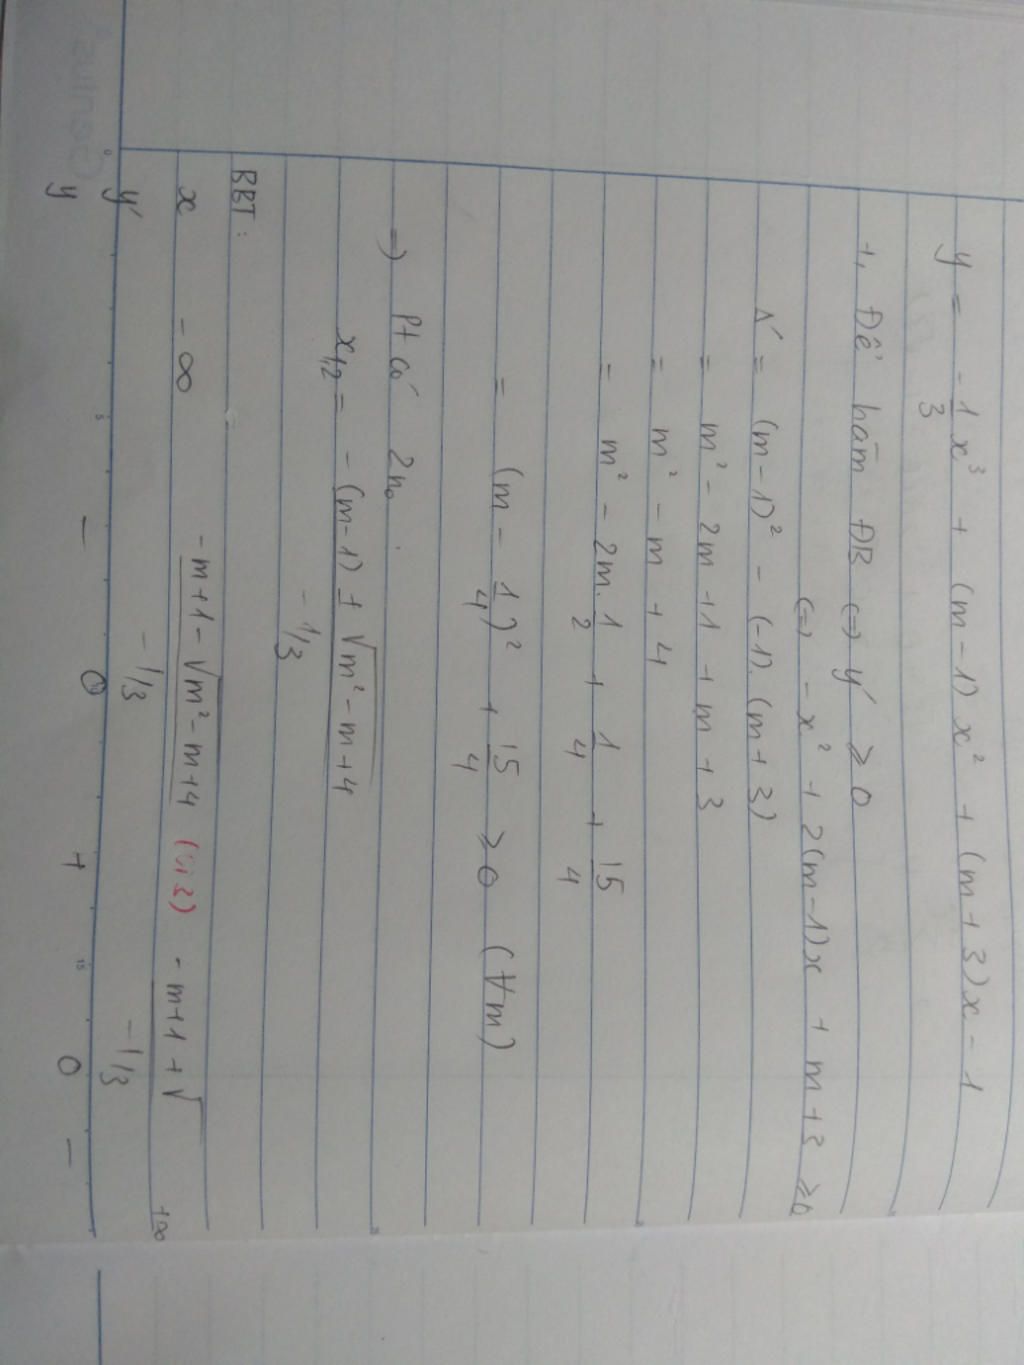 y = -1/3 x³ + (m-1)x² + (m+3)x - 1
+, Để hàm ĐB (=) y' ≥ 0
(=) -x² + 2(m-1)x + m+3 ≥ 0
Δ' = (m-1)² - (-1).(m+3)
= m² - 2m +1 + m + 3
= m² - m + 4
= m² - 2m.1/2 + 1/4 + 15/4
= (m - 1/4)² + 15/4 ≥ 0 (∀m)
=) Pt có 2no.
x1,2 = -(m-1) ± √m²-m+4 / -1/3
BBT:
x -∞ -m+1-√m²-m+4 / -1/3 -m+1+√ / -1/3 +∞
y' - 0 + 0 -
y